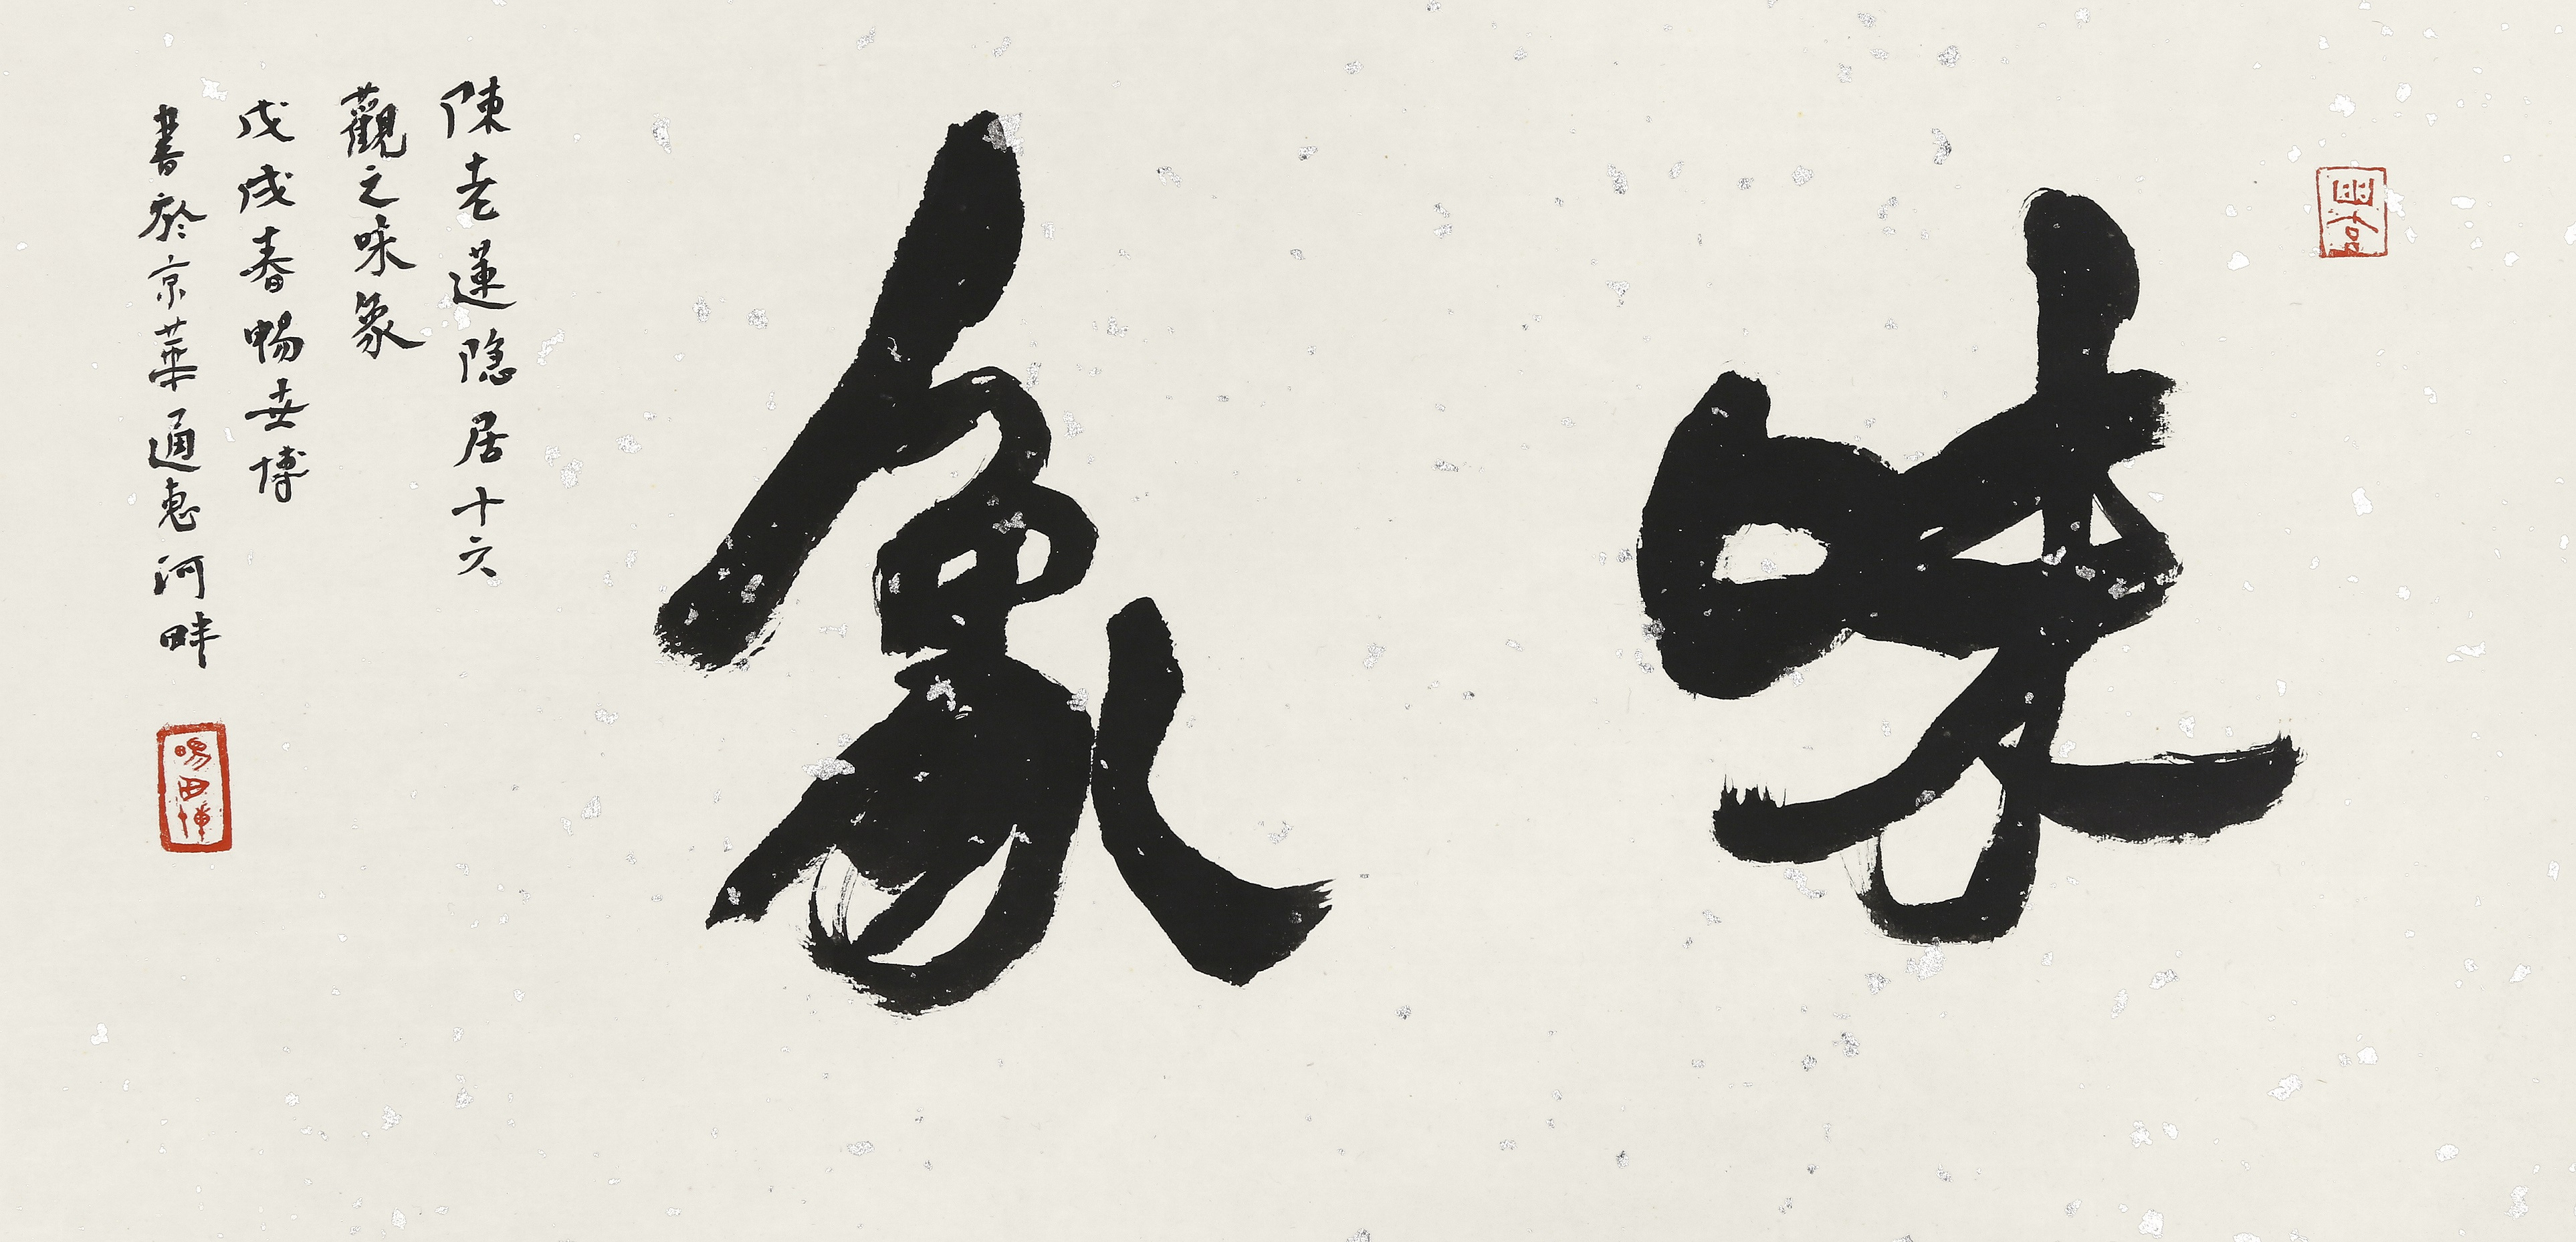 味象
陳老蓮隐居十六
觀之味象
戊戌春暢世博
書於京華通惠河畔